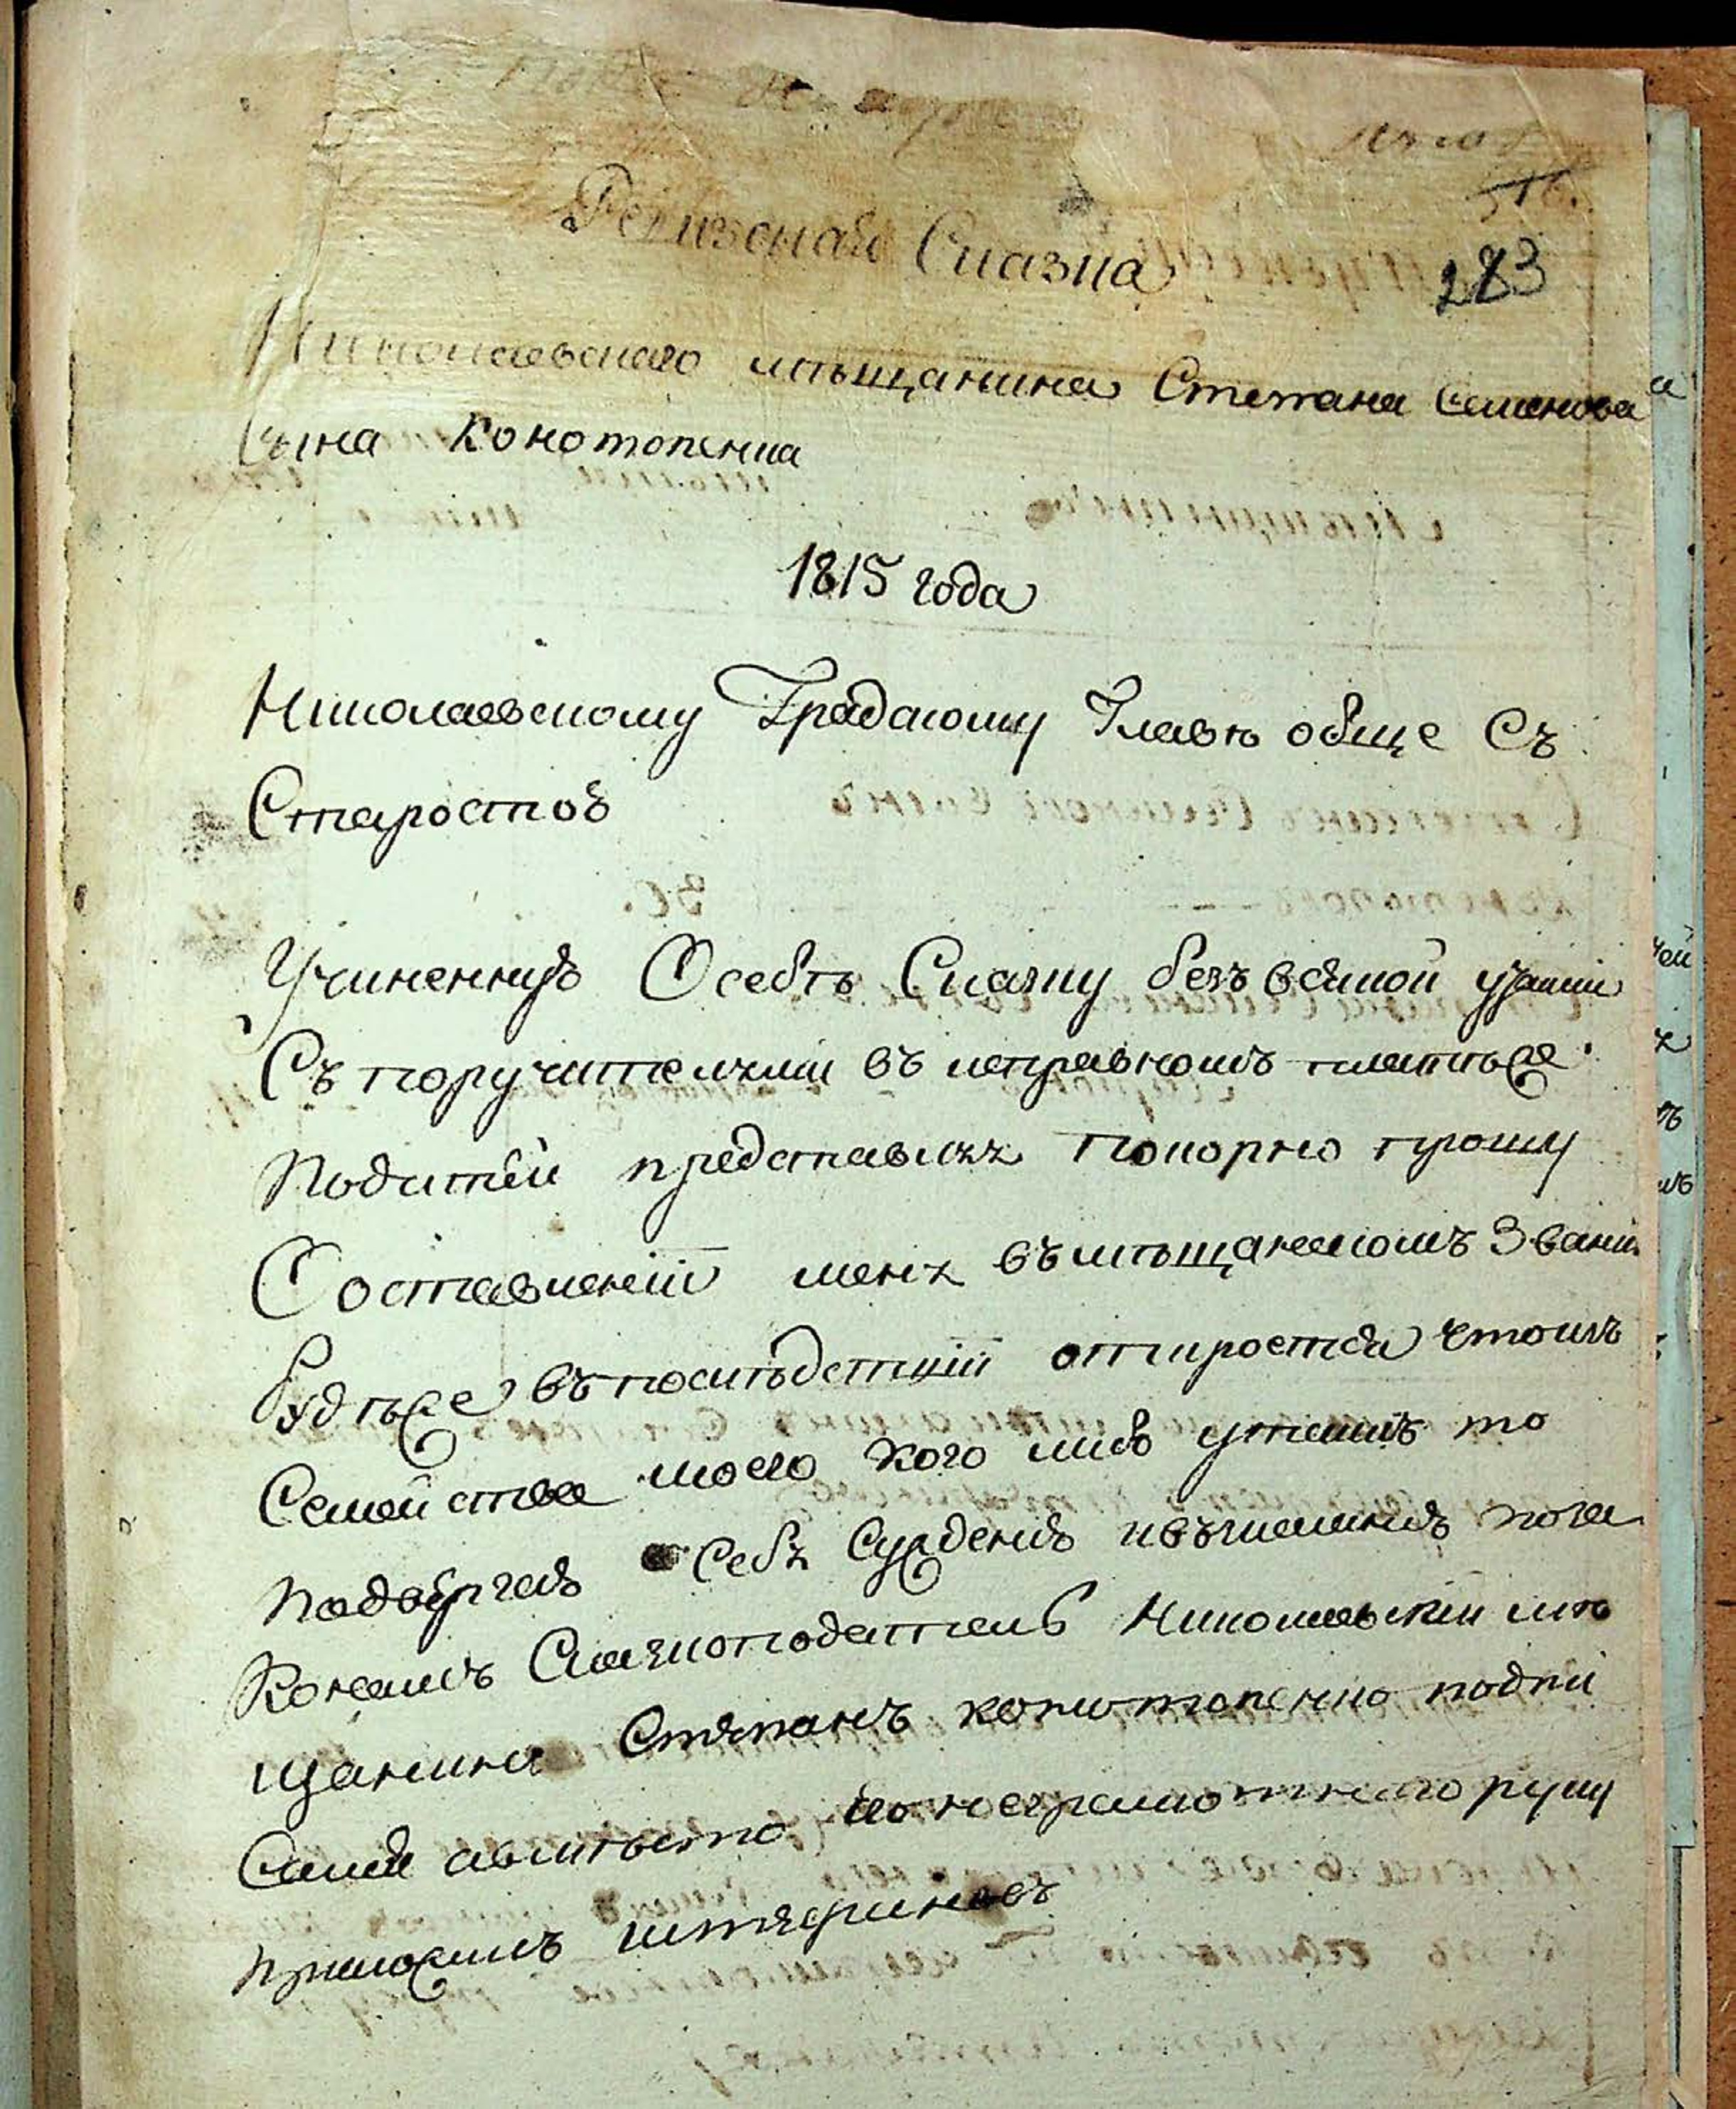 283
Ревизская Сказка
Николаевского мѣщанина Степана Семенова
Сына Конотопенка
1815 года
Николаевскому Градскому Главѣ обще Съ
Старостою
Учиненную О себѣ Скаску безъ всякой утайки
Съ поручителями въ исправномъ платежѣ
Податей представляя покорно прошу
О оставлении меня въ мѣщанскомъ Звании
Будѣже въ послѣдствии откроется что изъ
Семейства моего кого либо утаилъ то
Подвергаю Себя Суждению
Сказкоподатель Николаевский мѣ
щанинъ Степанъ конотопенко подпи
неграмотного руку
приложилъ